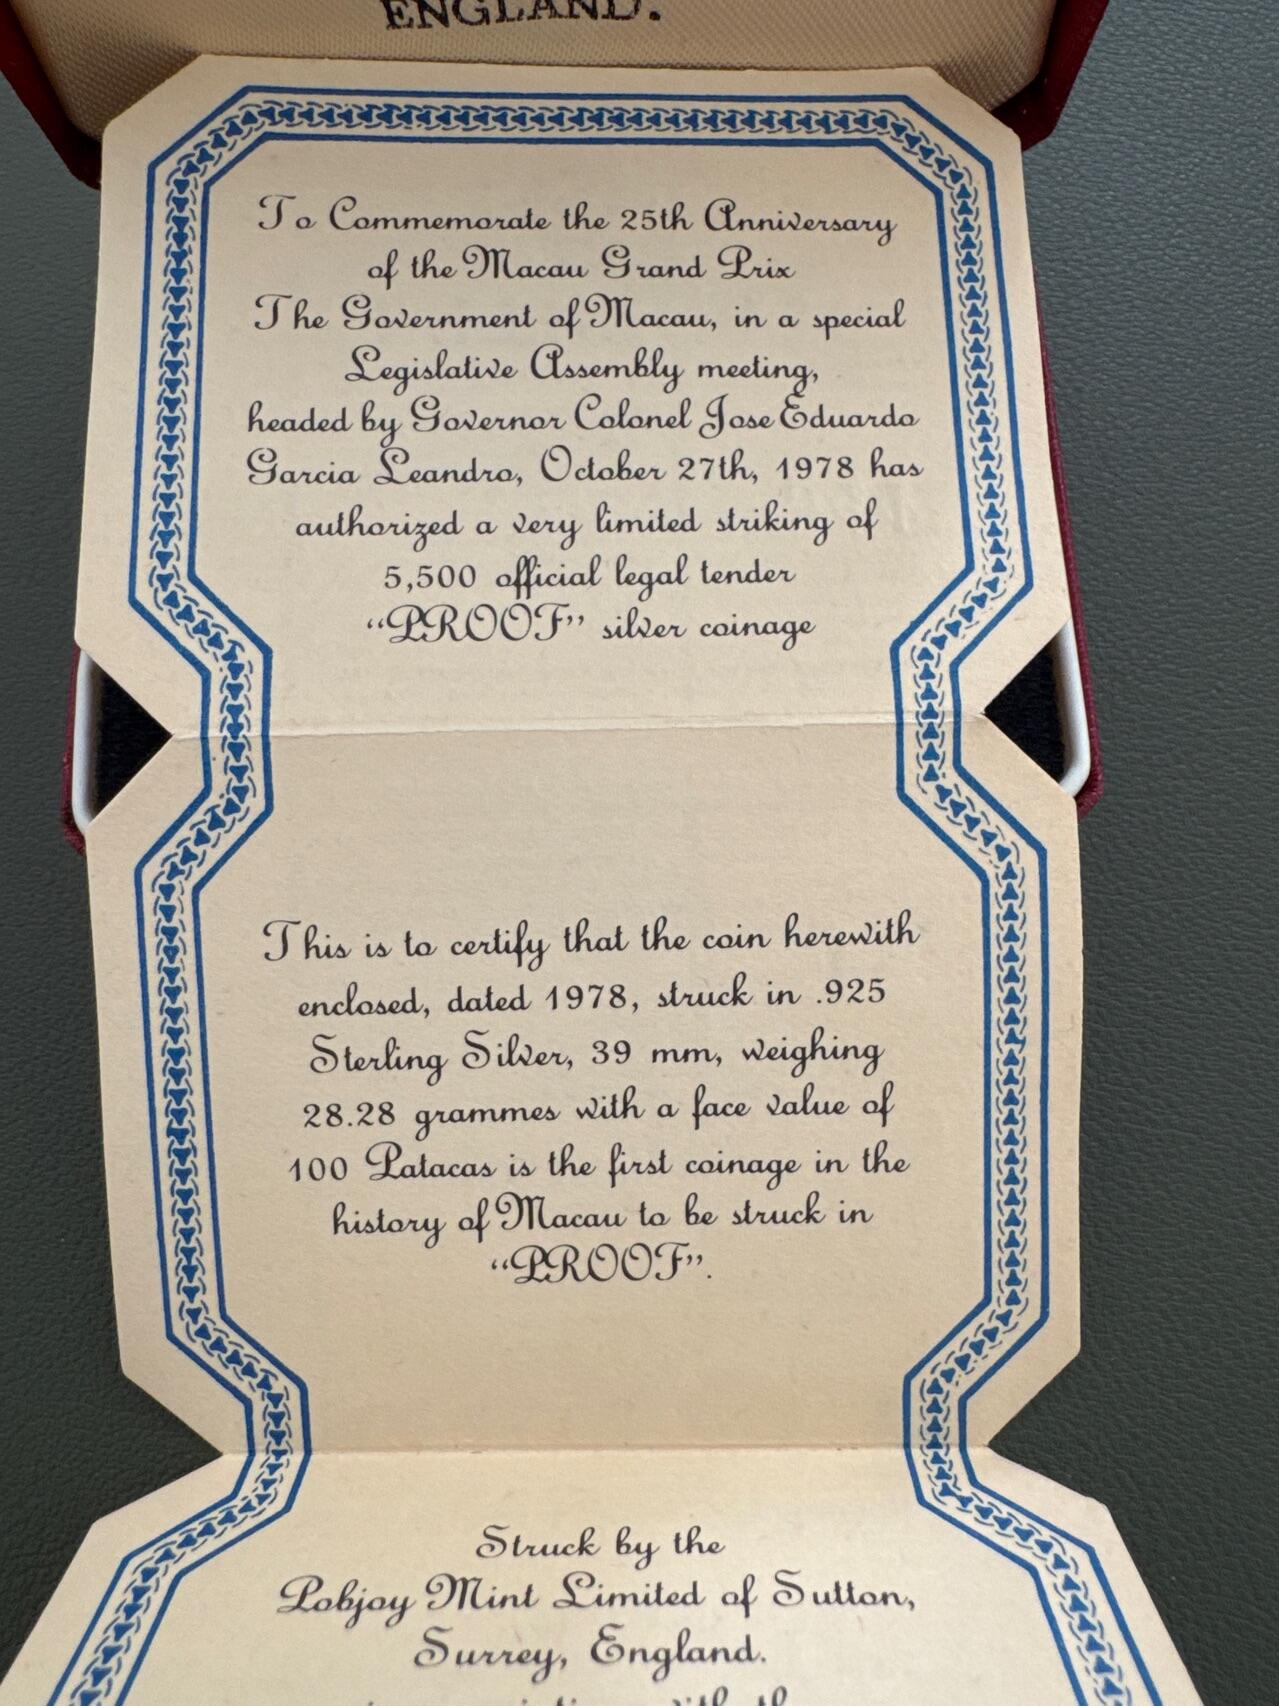 ENGLAND.
To Commemorate the 25th Anniversary
of the Macau Grand Prix
The Government of Macau, in a special
Legislative Assembly meeting,
headed by Governor Colonel Jose Eduardo
Garcia Leandro, October 27th, 1978 has
authorized a very limited striking of
5,500 official legal tender
“PROOF” silver coinage
This is to certify that the coin herewith
enclosed, dated 1978, struck in .925
Sterling Silver, 39 mm, weighing
28.28 grammes with a face value of
100 Patacas is the first coinage in the
history of Macau to be struck in
“PROOF”.
Struck by the
Pobjoy Mint Limited of Sutton,
Surrey, England.